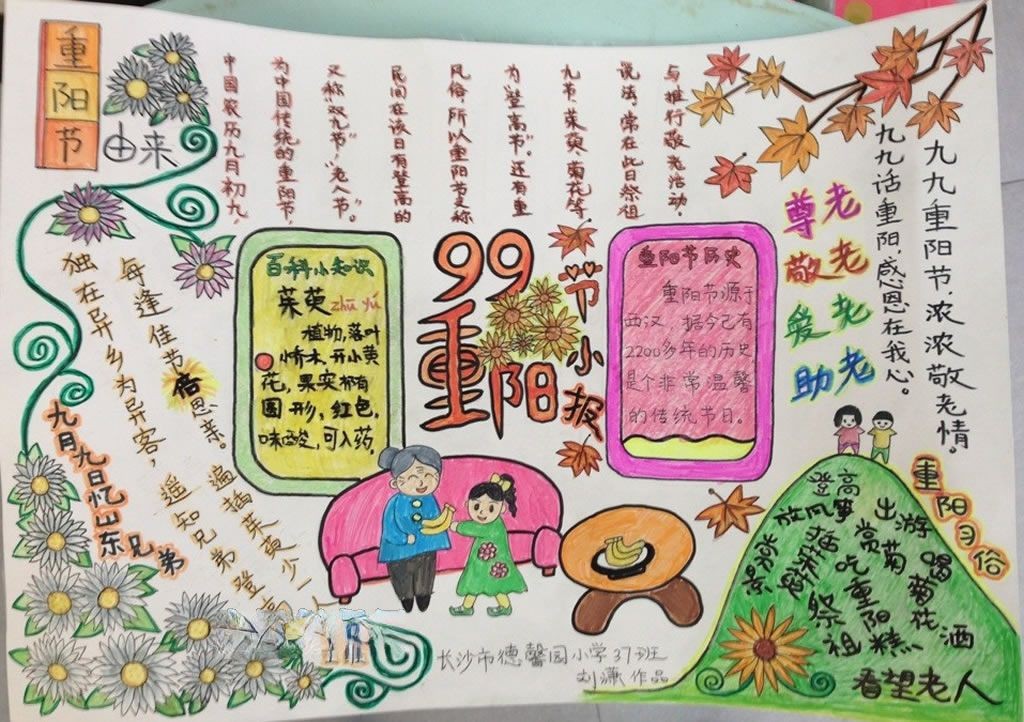 重阳节
由来
中国农历九月初九
为中国传统的重阳节，
又称"双九节"，"老人节"。
民间在该日有登高的
风俗，所以重阳节又称
为"登高节"。还有重
九节、茱萸、菊花等
说法，常在此日祭祖
与推行敬老活动。
九月九日忆山东兄弟
独在异乡为异客，
每逢佳节倍思亲。
遥知兄弟登高
遍插茱萸少一人
百科小知识
茱萸 zhū yú
植物，落叶
小乔木，开小黄
花，果实椭
圆形，红色，
味酸，可入药。
99
重阳
节小报
重阳节历史
重阳节源于
西汉，据今已有
2200多年的历史
是个非常温馨
的传统节日。
尊老
敬老
爱老
助老
九九重阳节，浓浓敬老情。
九九话重阳，感恩在我心。
重阳习俗
登高
放风筝
出游
赏菊
喝菊花酒
吃重阳糕
祭祖
看望老人
长沙市德馨园小学37班
刘潇作品